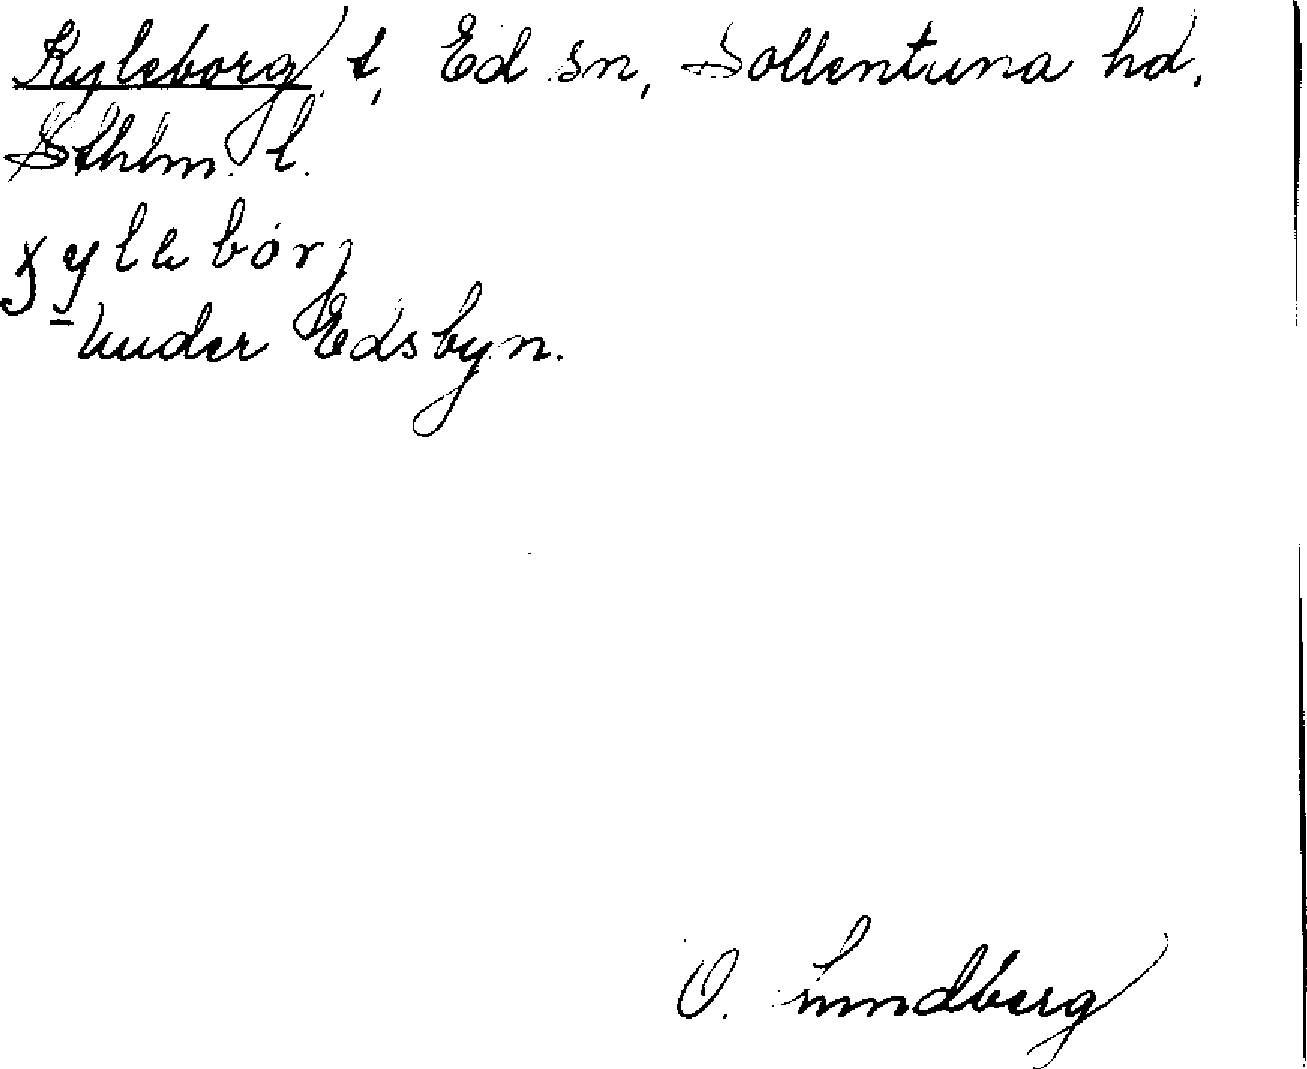 Kyleborg t, Ed sn, Sollentuna hd.
Sthlm. l.
under Edsbyn.
O. Lundberg